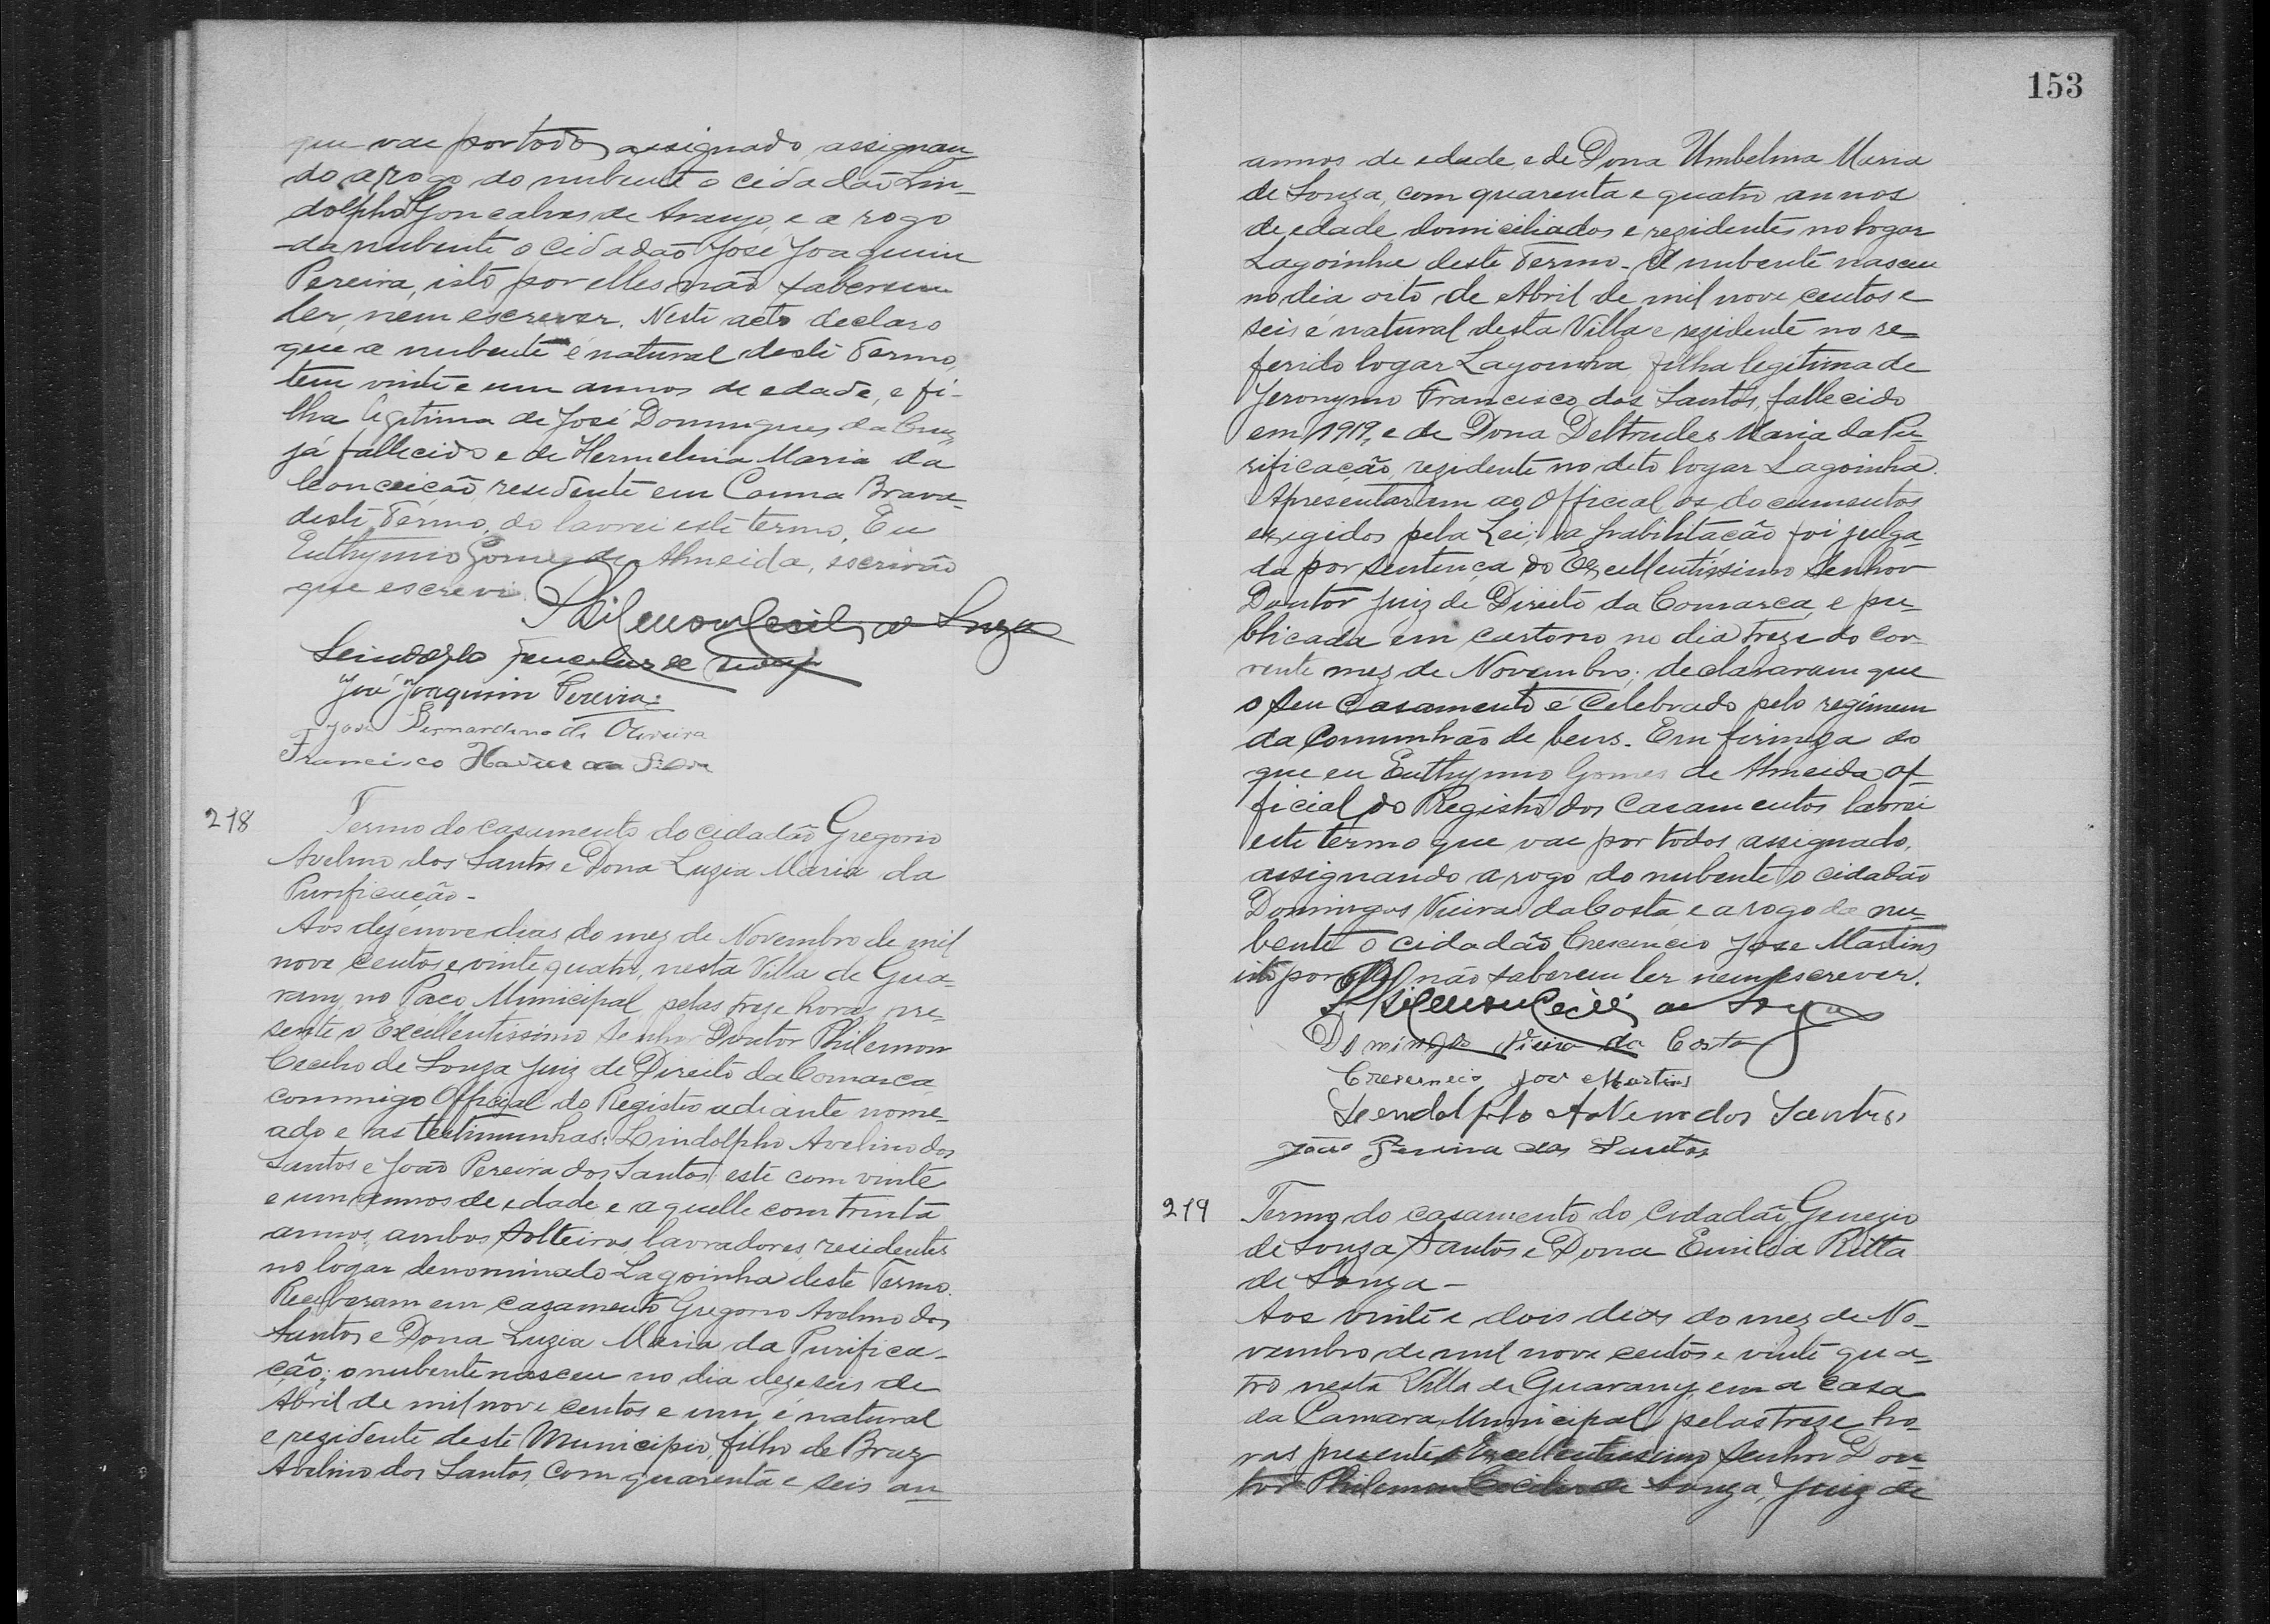 que vae por todos assignado, assignan-
do a rogo do nubente o cidadão Lin-
dolpho Gonçalves de Araujo, e a rogo
da nubente o cidadão José Joaquim
Pereira, isto por elles não saberem
ler, nem escrever. Neste acto declaro
que a nubente é natural deste Termo,
tem vinte e um annos de edade, e fi-
lha legitima de José Domingues da Cruz
já fallecido e de Hermelina Maria da
Conceição, residente em Canna Brava
deste Termo, do lavrei este termo. Eu
Euthymio Gomes de Almeida, escrivão
que escrevi.
Philemon Cecilio de Souza
Lindolfo
José Joaquim Pereira
José Bernardino de Oliveira
Francisco Xavier da Silva
218
Termo do casamento do cidadão Gregorio
Avelino dos Santos e Dona Luzia Maria da
Purificação -
Aos dezenove dias do mez de Novembro de mil
nove centos e vinte quatro, nesta Villa de Gua-
rany, no Paço Municipal, pelas treze horas, pre-
sente o Excellentissimo Senhor Doutor Philemon
Cecilio de Souza Juiz de Direito da Comarca
commigo Official do Registro adiante nome-
ado e as testimunhas: Lindolpho Avelino dos
Santos e João Pereira dos Santos, este com vinte
e um annos de edade e aquelle com trinta
annos, ambos solteiros, lavradores, residentes
no logar denominado Lagoinha deste Termo.
Receberam em casamento Gregorio Avelino dos
Santos e Dona Luzia Maria da Purifica-
ção; o nubente nasceu no dia dezeseis de
Abril de mil nove centos e um, é natural
e rezidente deste Municipio, filho de Braz
Avelino dos Santos, com quarenta e seis an-
153
annos de edade e de Dona Umbelina Maria
de Souza, com quarenta e quatro annos
de edade domiciliados e rezidentes no logar
Lagoinha deste Termo. A nubente nasceu
no dia oito de Abril de mil nove centos e
seis é natural desta Villa e rezidente no re-
ferido logar Lagoinha, filha legitima de
Jeronymo Francisco dos Santos, fallecido
em 1919, e de Dona Deltrudes Maria da Pu-
rificação, rezidente no dito logar Lagoinha.
Apresentaram ao Official os documentos
exigidos pela Lei; a habilitação foi julga-
da por sentença do Excellentissimo Senhor
Doutor Juiz de Direito da Comarca, e pu-
blicada em cartorio no dia treze do cor-
rente mez de Novembro; declararam que
o seu casamento é celebrado pelo regimem
da Comunhão de bens. Em firmeza do
que eu Euthymio Gomes de Almeida of-
ficial do Registro dos Casamentos lavrei
este termo que vae por todos assignado,
assignando a rogo do nubente o cidadão
Domingos Vieira da Costa e a rogo da nu-
bente o cidadão Crescencio José Martins
isto por não saberem ler nem escrever.
Philemon Cecilio de Souza
Domingos Vieira da Costa
Crescencio José Martins
Leendolpho Avelino dos Santos
João Pereira dos Santos
219
Termo do casamento do cidadão Genezio
de Souza Santos e Dona Emilia Ritta
de Souza -
Aos vinte e dois dias do mez de No-
vembro de mil nove centos e vinte qua-
tro nesta Villa de Guarany, em a casa
da Camara Municipal, pelas treze ho-
ras presente o Excellentissimo Senhor Dou-
tor Philemon Cecilio de Souza, Juiz de